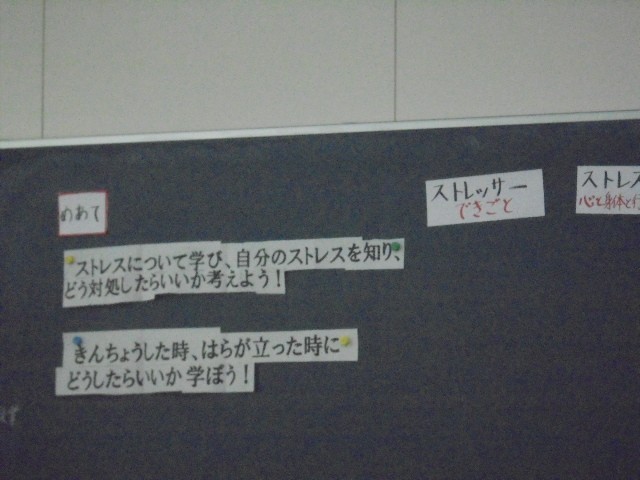 めあて
ストレスについて学び、自分のストレスを知り、
どう対処したらいいか考えよう！
きんちょうした時、はらが立った時に
どうしたらいいか学ぼう！
ストレッサー
できごと
ストレス
心と身体と行